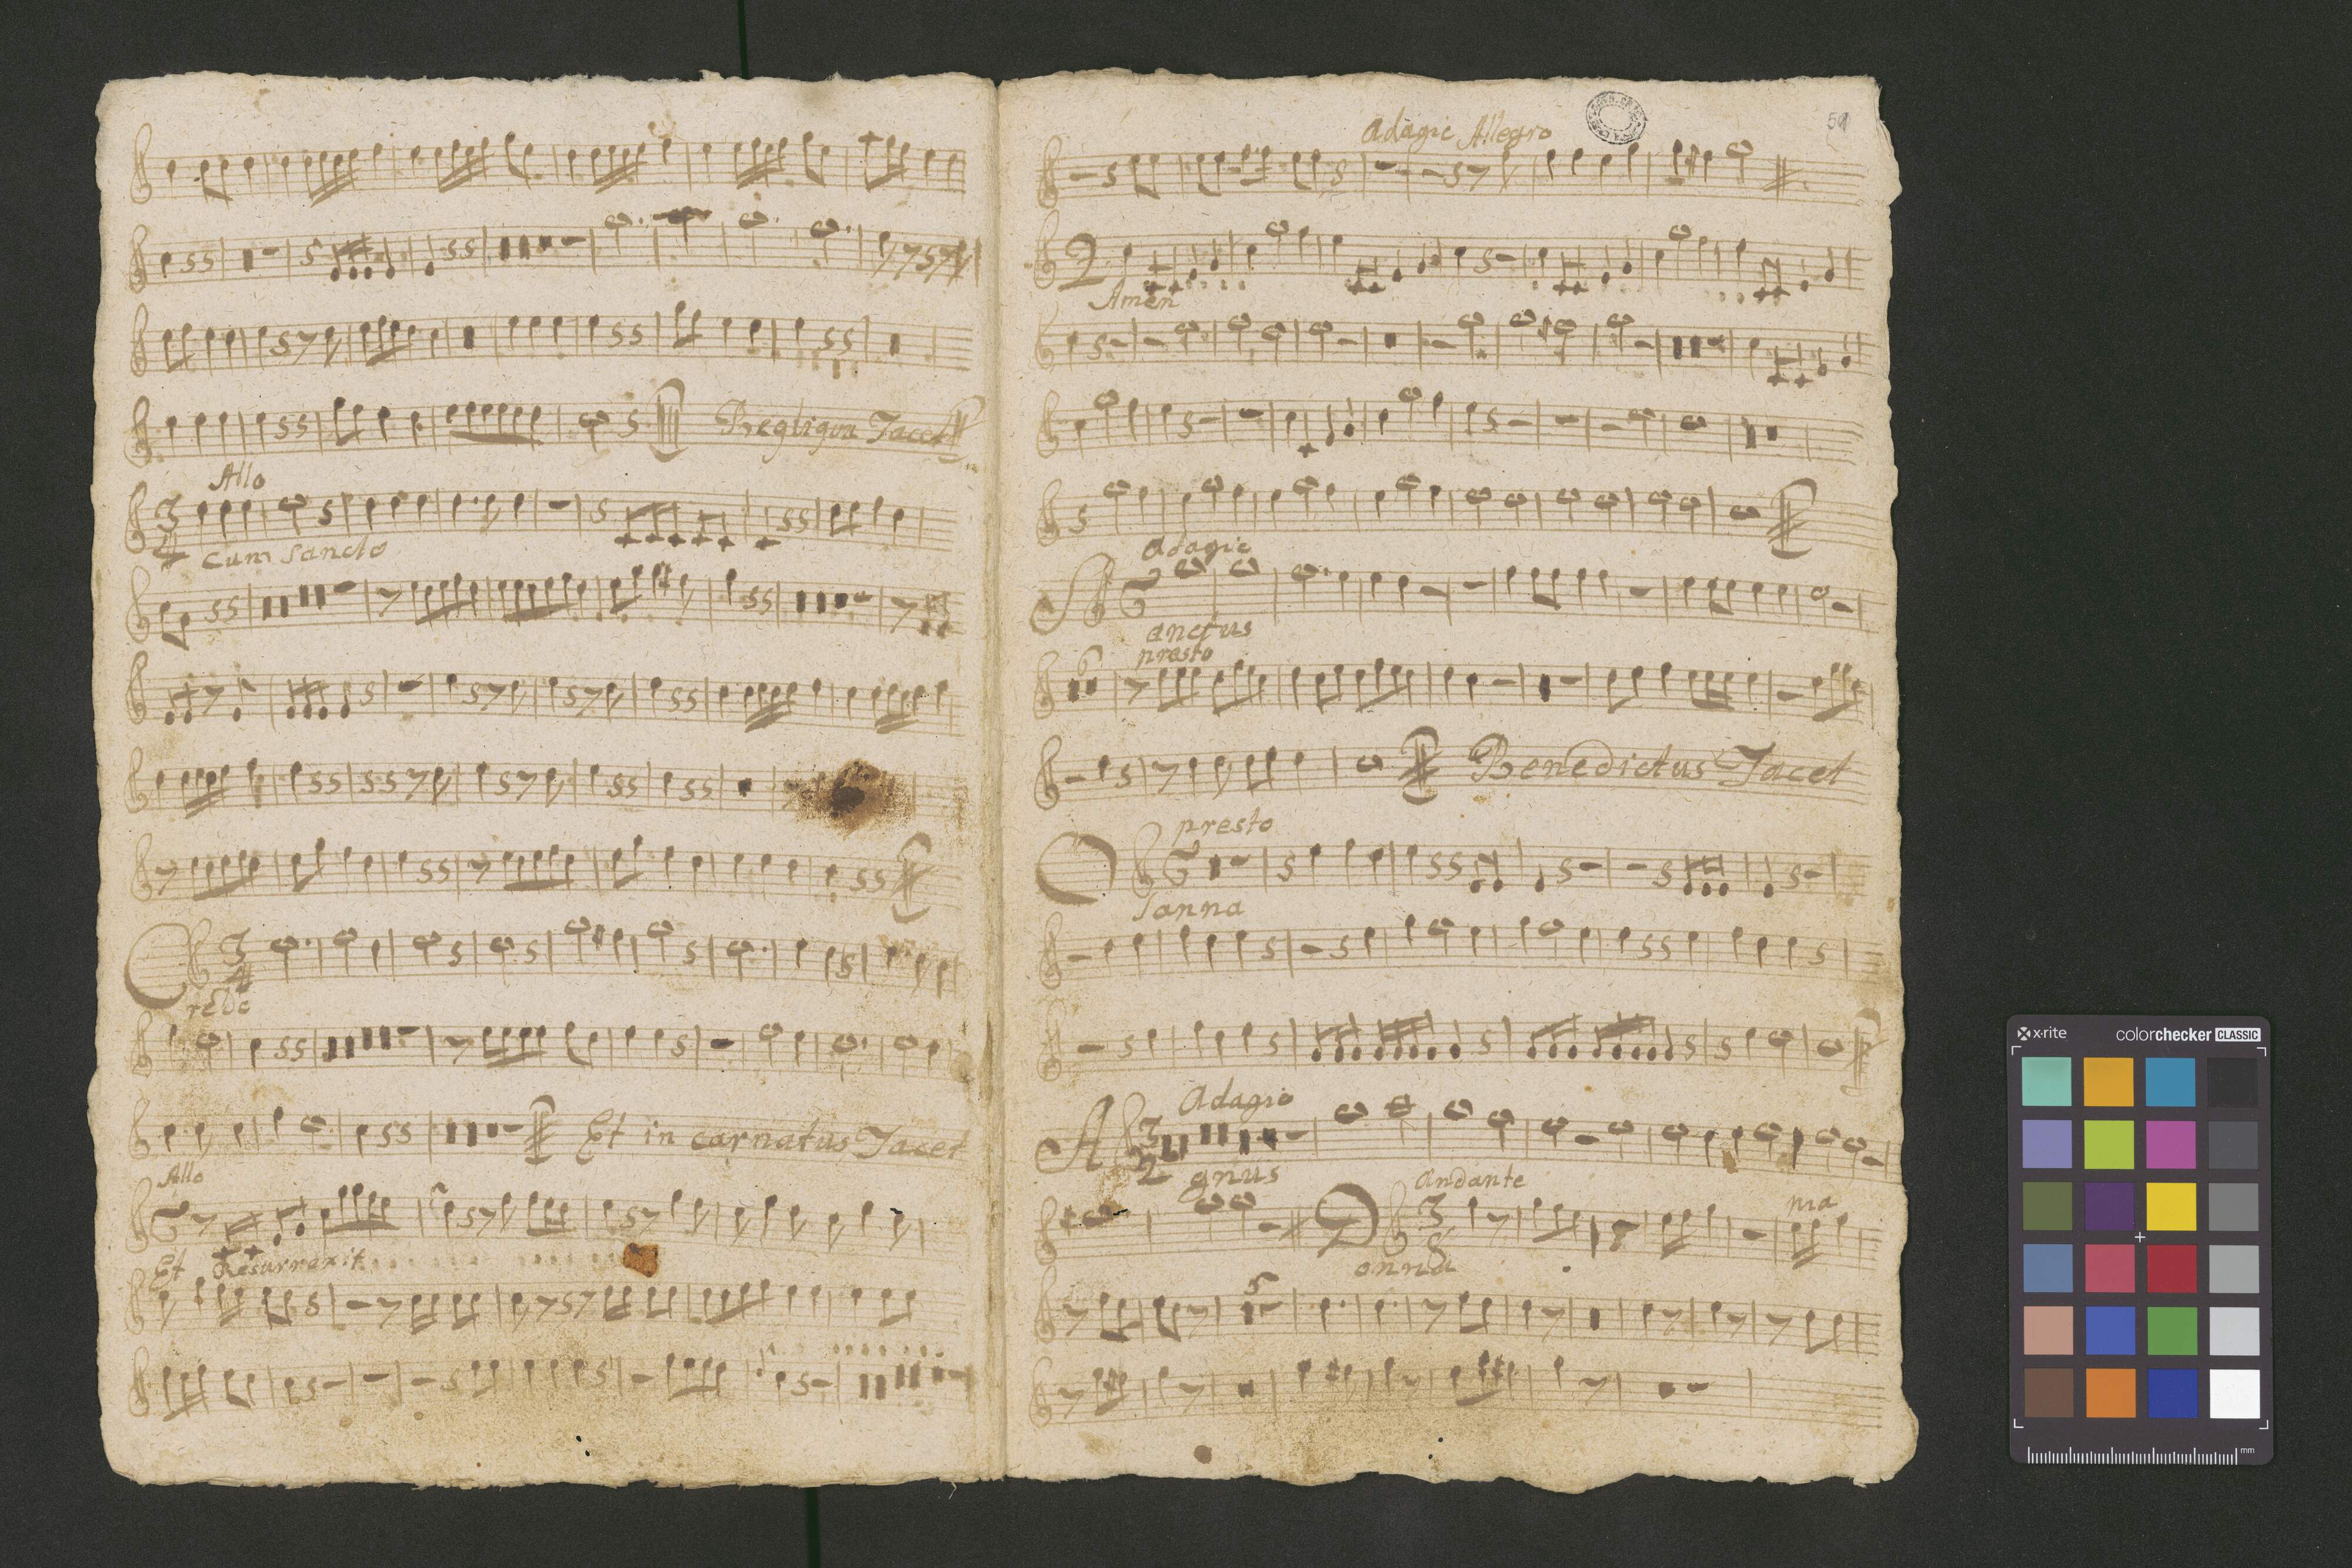 Reqliqua Tacet
Allo
3
4
Cum Sancto
3
4
redo
Et in carnatus Tacet
Allo
Et Resurrexit
Adagio Allegro
59
2
Amen
Adagio
S
anctus
6
presto
Benedictus Tacet
presto
O
Sanna
Adagio
A
3
2
gnus
andante
D
3
8
onna
ma
5
x-rite
colorchecker CLASSIC
mm